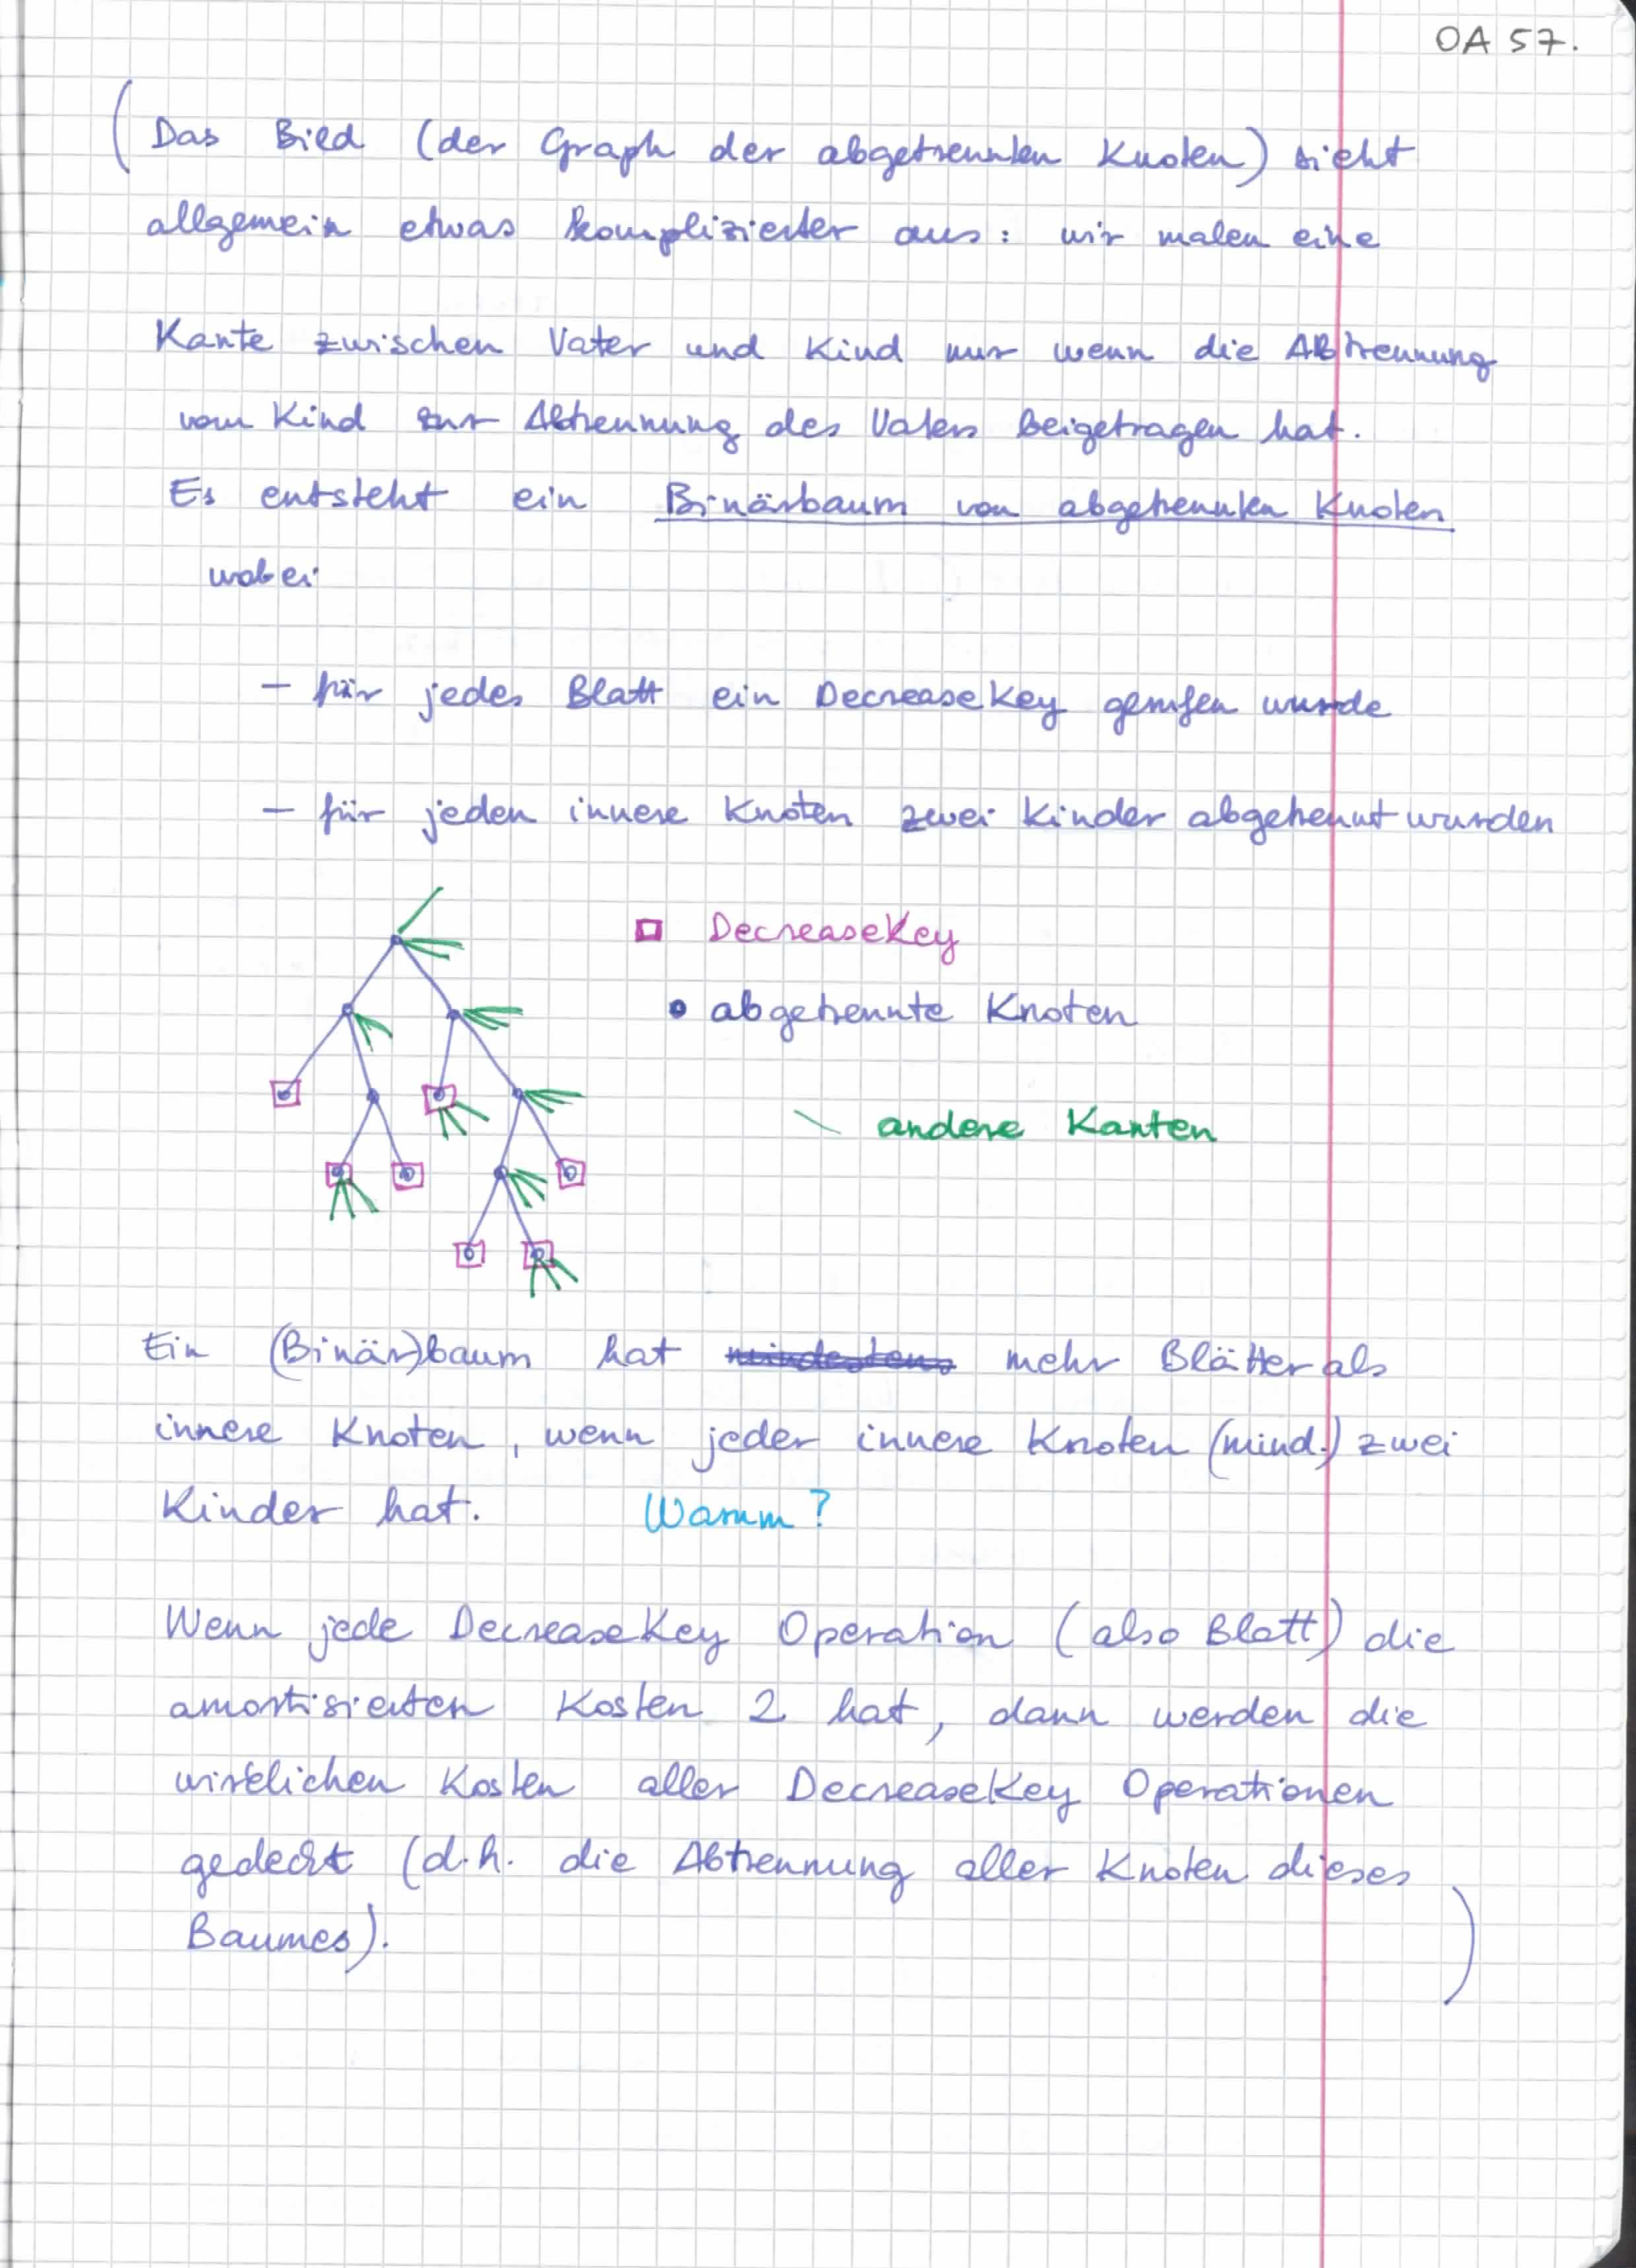 OA 57.
(Das Bild (der Graph der abgetrennten Knoten) sieht
allgemein etwas komplizierter aus: wir malen eine
Kante zwischen Vater und Kind nur wenn die Abtrennung
vom Kind zur Abtrennung des Vaters beigetragen hat.
Es entsteht ein Binärbaum von abgetrennten Knoten
wobei
- für jedes Blatt ein DecreaseKey gerufen wurde
- für jeden innere Knoten zwei Kinder abgetrennt wurden
DecreaseKey
abgetrennte Knoten
andere Kanten
Ein (Binär)baum hat mindestens mehr Blätter als
innere Knoten, wenn jeder innere Knoten (mind.) zwei
Kinder hat. Warum?
Wenn jede DecreaseKey Operation (also Blatt) die
amortisierten Kosten 2 hat, dann werden die
wirklichen Kosten aller DecreaseKey Operationen
gedeckt (d.h. die Abtrennung aller Knoten dieses
Baumes). )